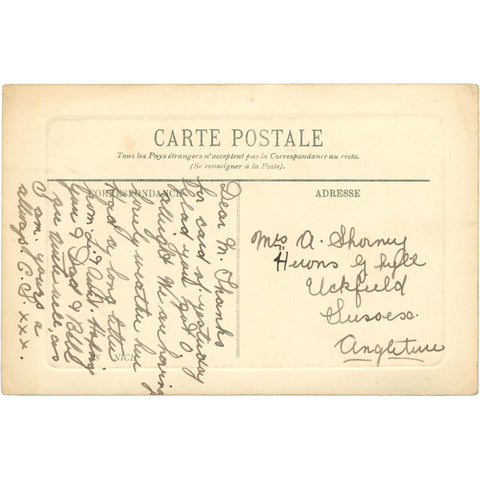 CARTE POSTALE
Tous les Pays étrangers n'acceptent pas la Correspondance au recto.
(Se renseigner à la Poste).
CORRESPONDANCE
ADRESSE
Dear M. Thanks
for card of yesterday
Glad you got O
allright We are having
lovely weather here
Had a long letter
from
you & Dad & Bill
are well, as
I am. yours as
always C.S. xxx.
Mrs A. Shorney
Herons Ghyll
Uckfield
Sussex.
Angleterre